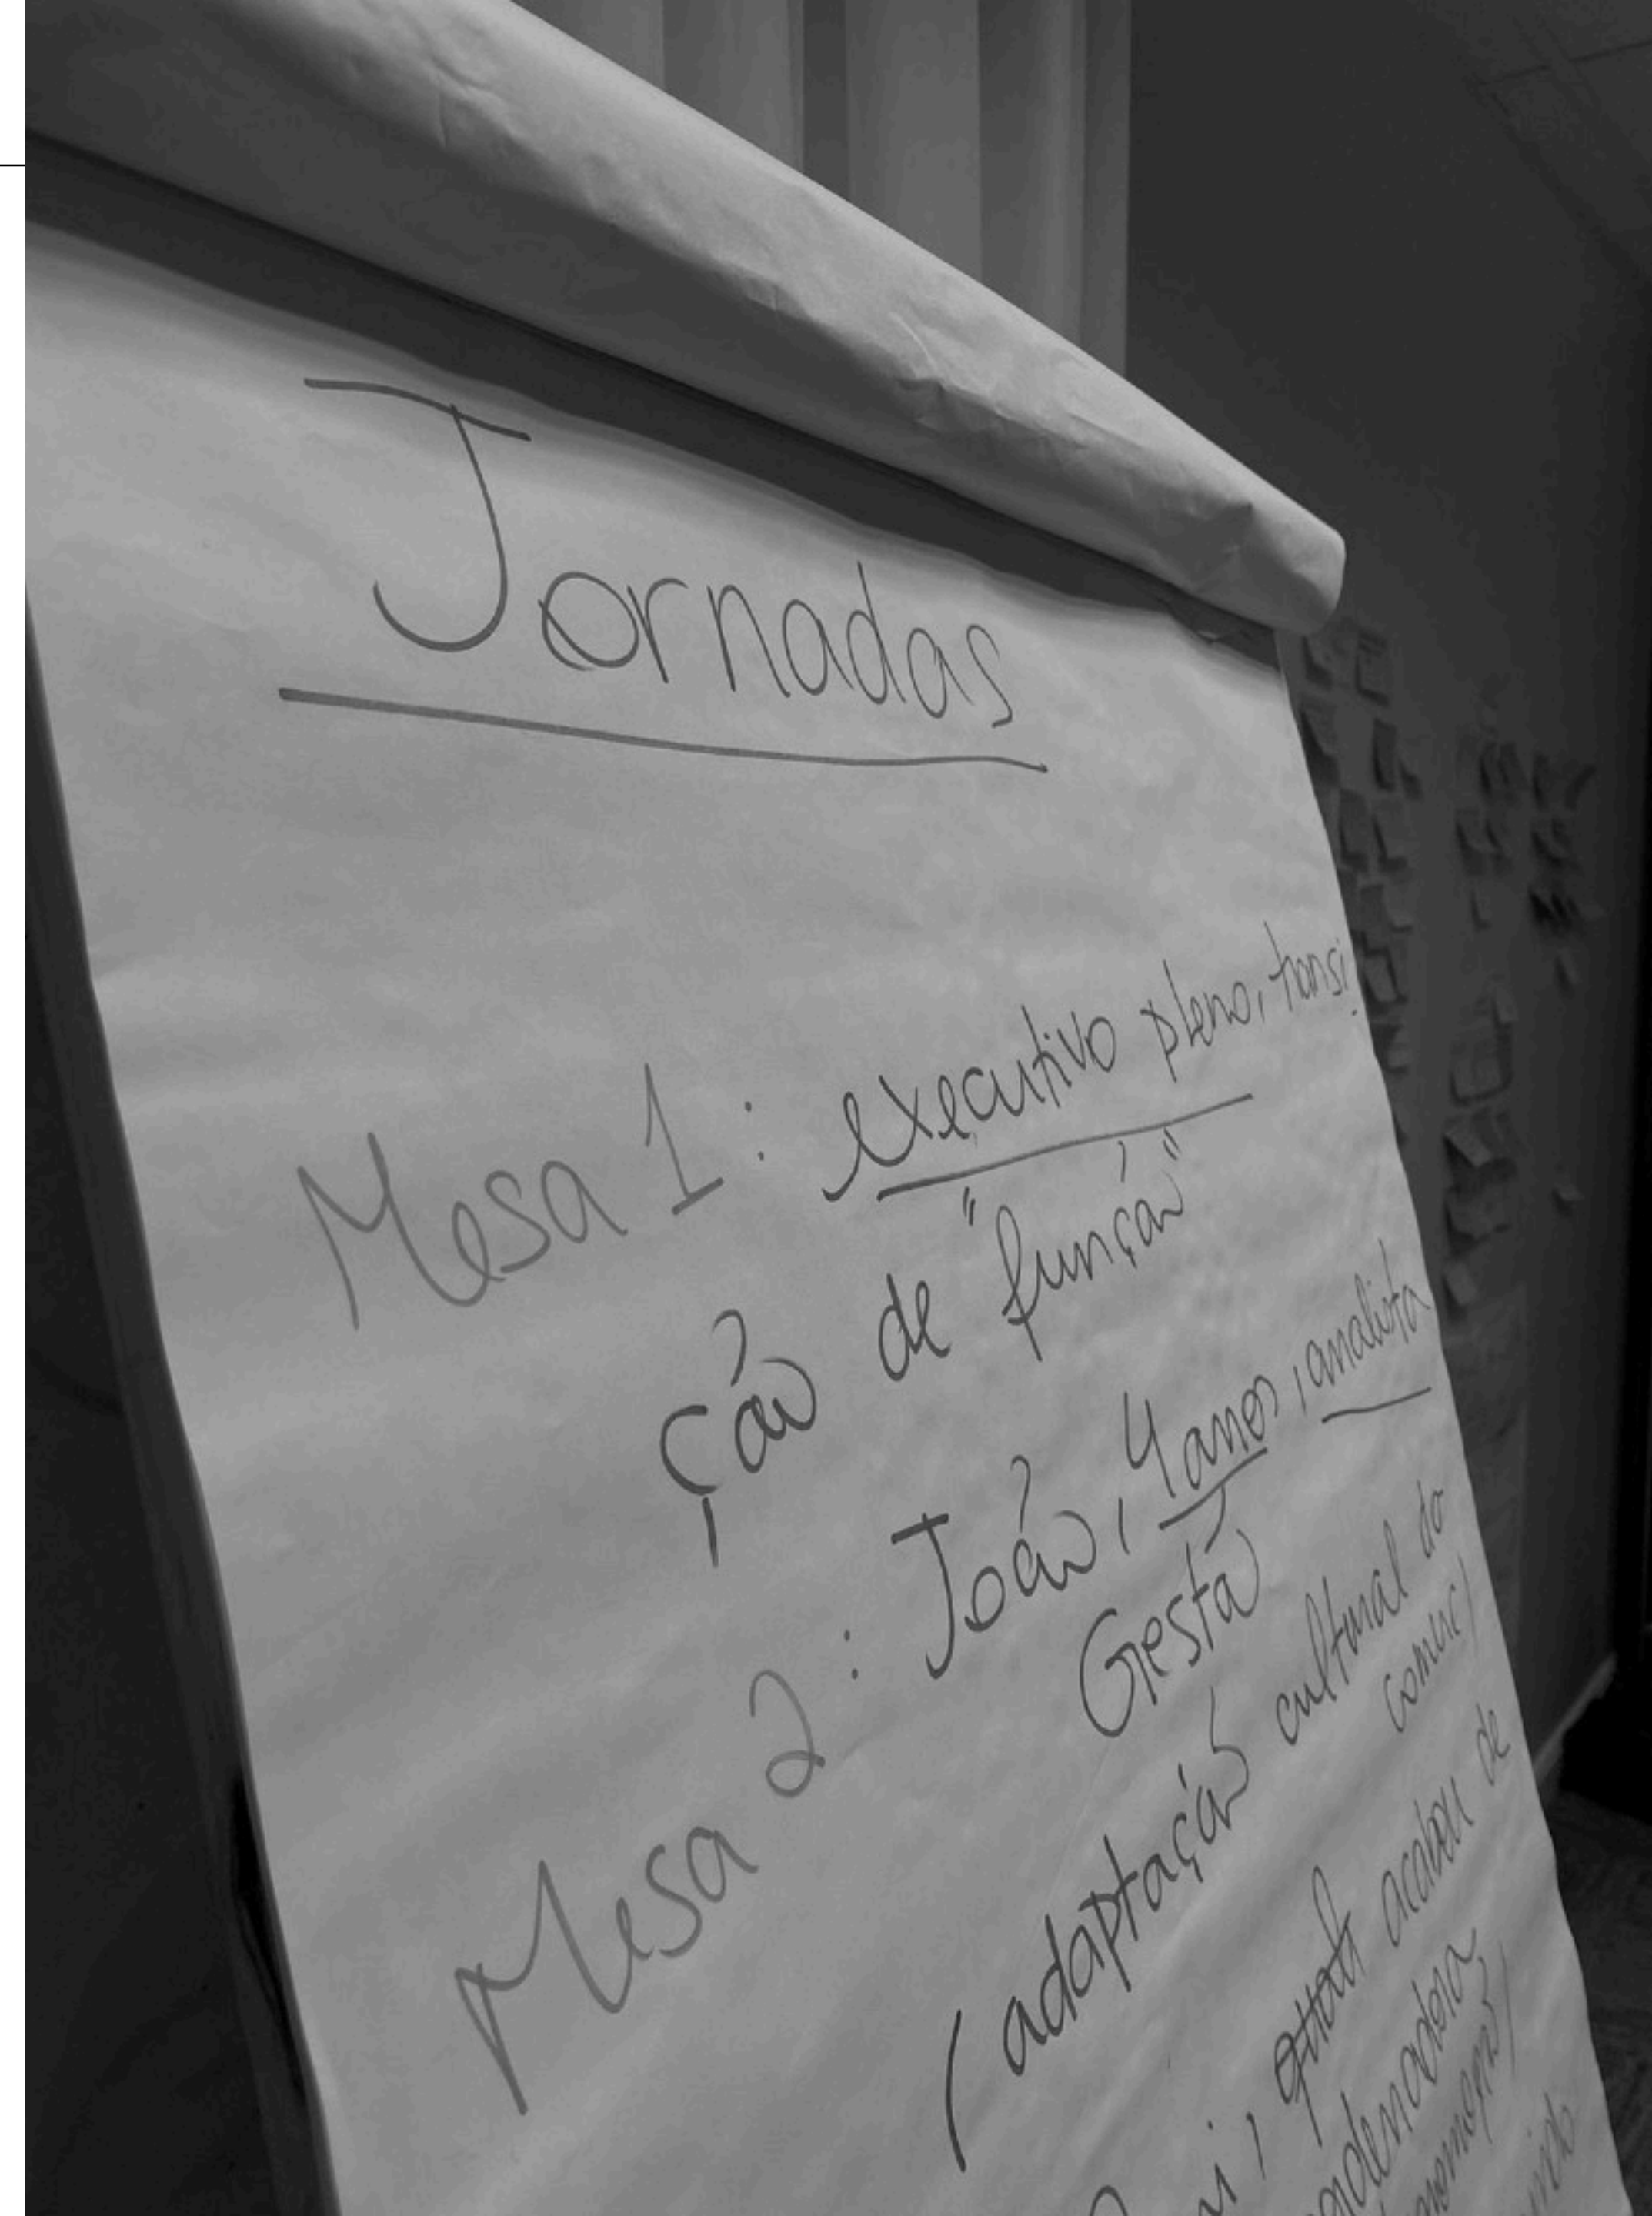 Jornadas
Mesa 1: executivo pleno, transi
ção de "função"
Mesa 2: João, 4 anos, analista
Gestão
(adaptação cultural do
comer)
acabou de